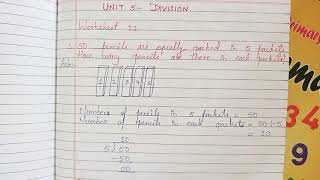 UNIT 5- DIVISION
Worksheet 22
50 pencils are equally packed in 5 packets.
How many pencils are there in each packet?
Soln:
Numbers of pencils in 5 packets = 50
Number of pencils in each packets = 50÷5
= 10
10
5 50
-50
00
Primary
34
9